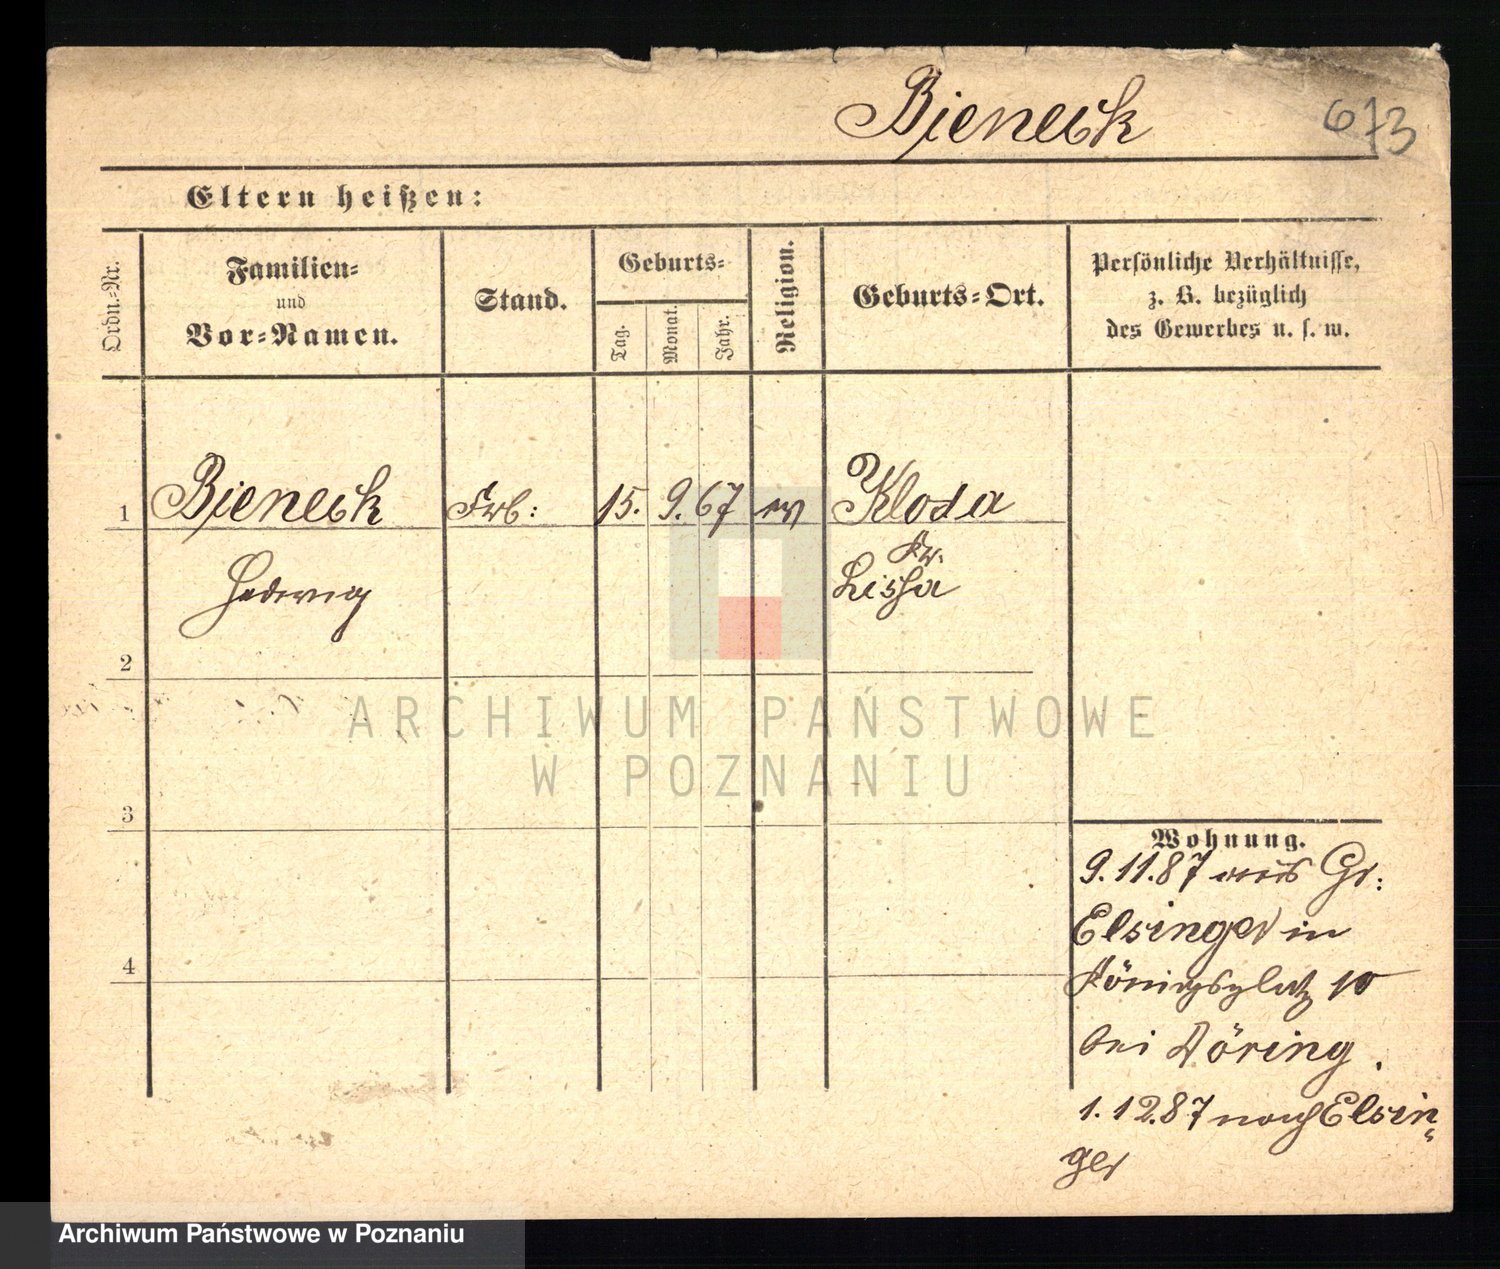 Bieneck
673
Eltern heißen:
Ordn.-Nr.
Familien-
und
Vor-Namen.
Stand.
Geburts-
Tag.
Monat.
Jahr.
Religion.
Geburts-Ort.
Persönliche Verhältnisse,
z. B. bezüglich
des Gewerbes u. s. w.
1 Bieneck 15. 9. 67 ev Kloda
Kr.
Hedwig Lissa
2
ARCHIWUM PAŃSTWOWE
W POZNANIU
3
Wohnung.
9.11.87 aus Gr:
Elsinger in
4
Königsplatz 10
bei Döring.
1.12.87 nach Elsin-
ger
Archiwum Państwowe w Poznaniu